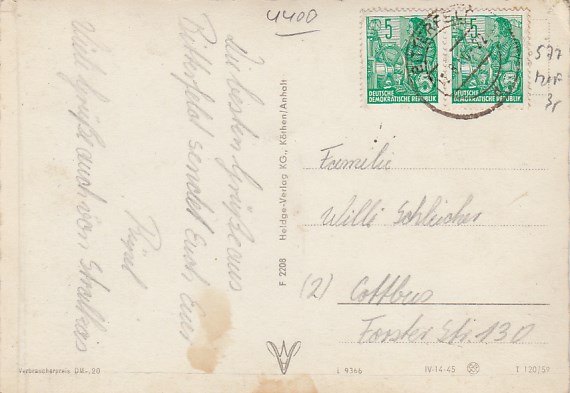 4400
Die besten Grüße aus
Bitterfeld sendet Euch Euer
Viele Grüße auch von
F 2208 Heldge-Verlag KG., Köthen/Anhalt
5
DEUTSCHE
DEMOKRATISCHE REPUBLIK
5
DEUTSCHE
DEMOKRATISCHE REPUBLIK
BITTERFELD
577
Familie
Willi Schleicher
(2) Cottbus
Forster Str. 130
Verbraucherpreis DM -,20
IV-14-45